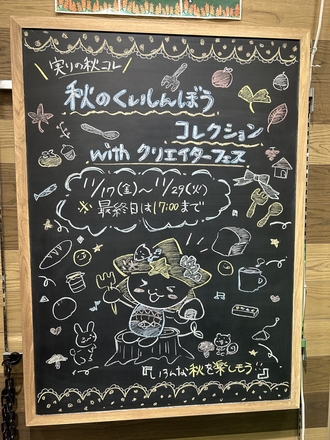 実りの秋コレ
秋のくいしんぼう
コレクション
with クリエイターフェス
11/17(金)～11/29(火)
※最終日は17:00まで
『いろんな秋を楽しもう』